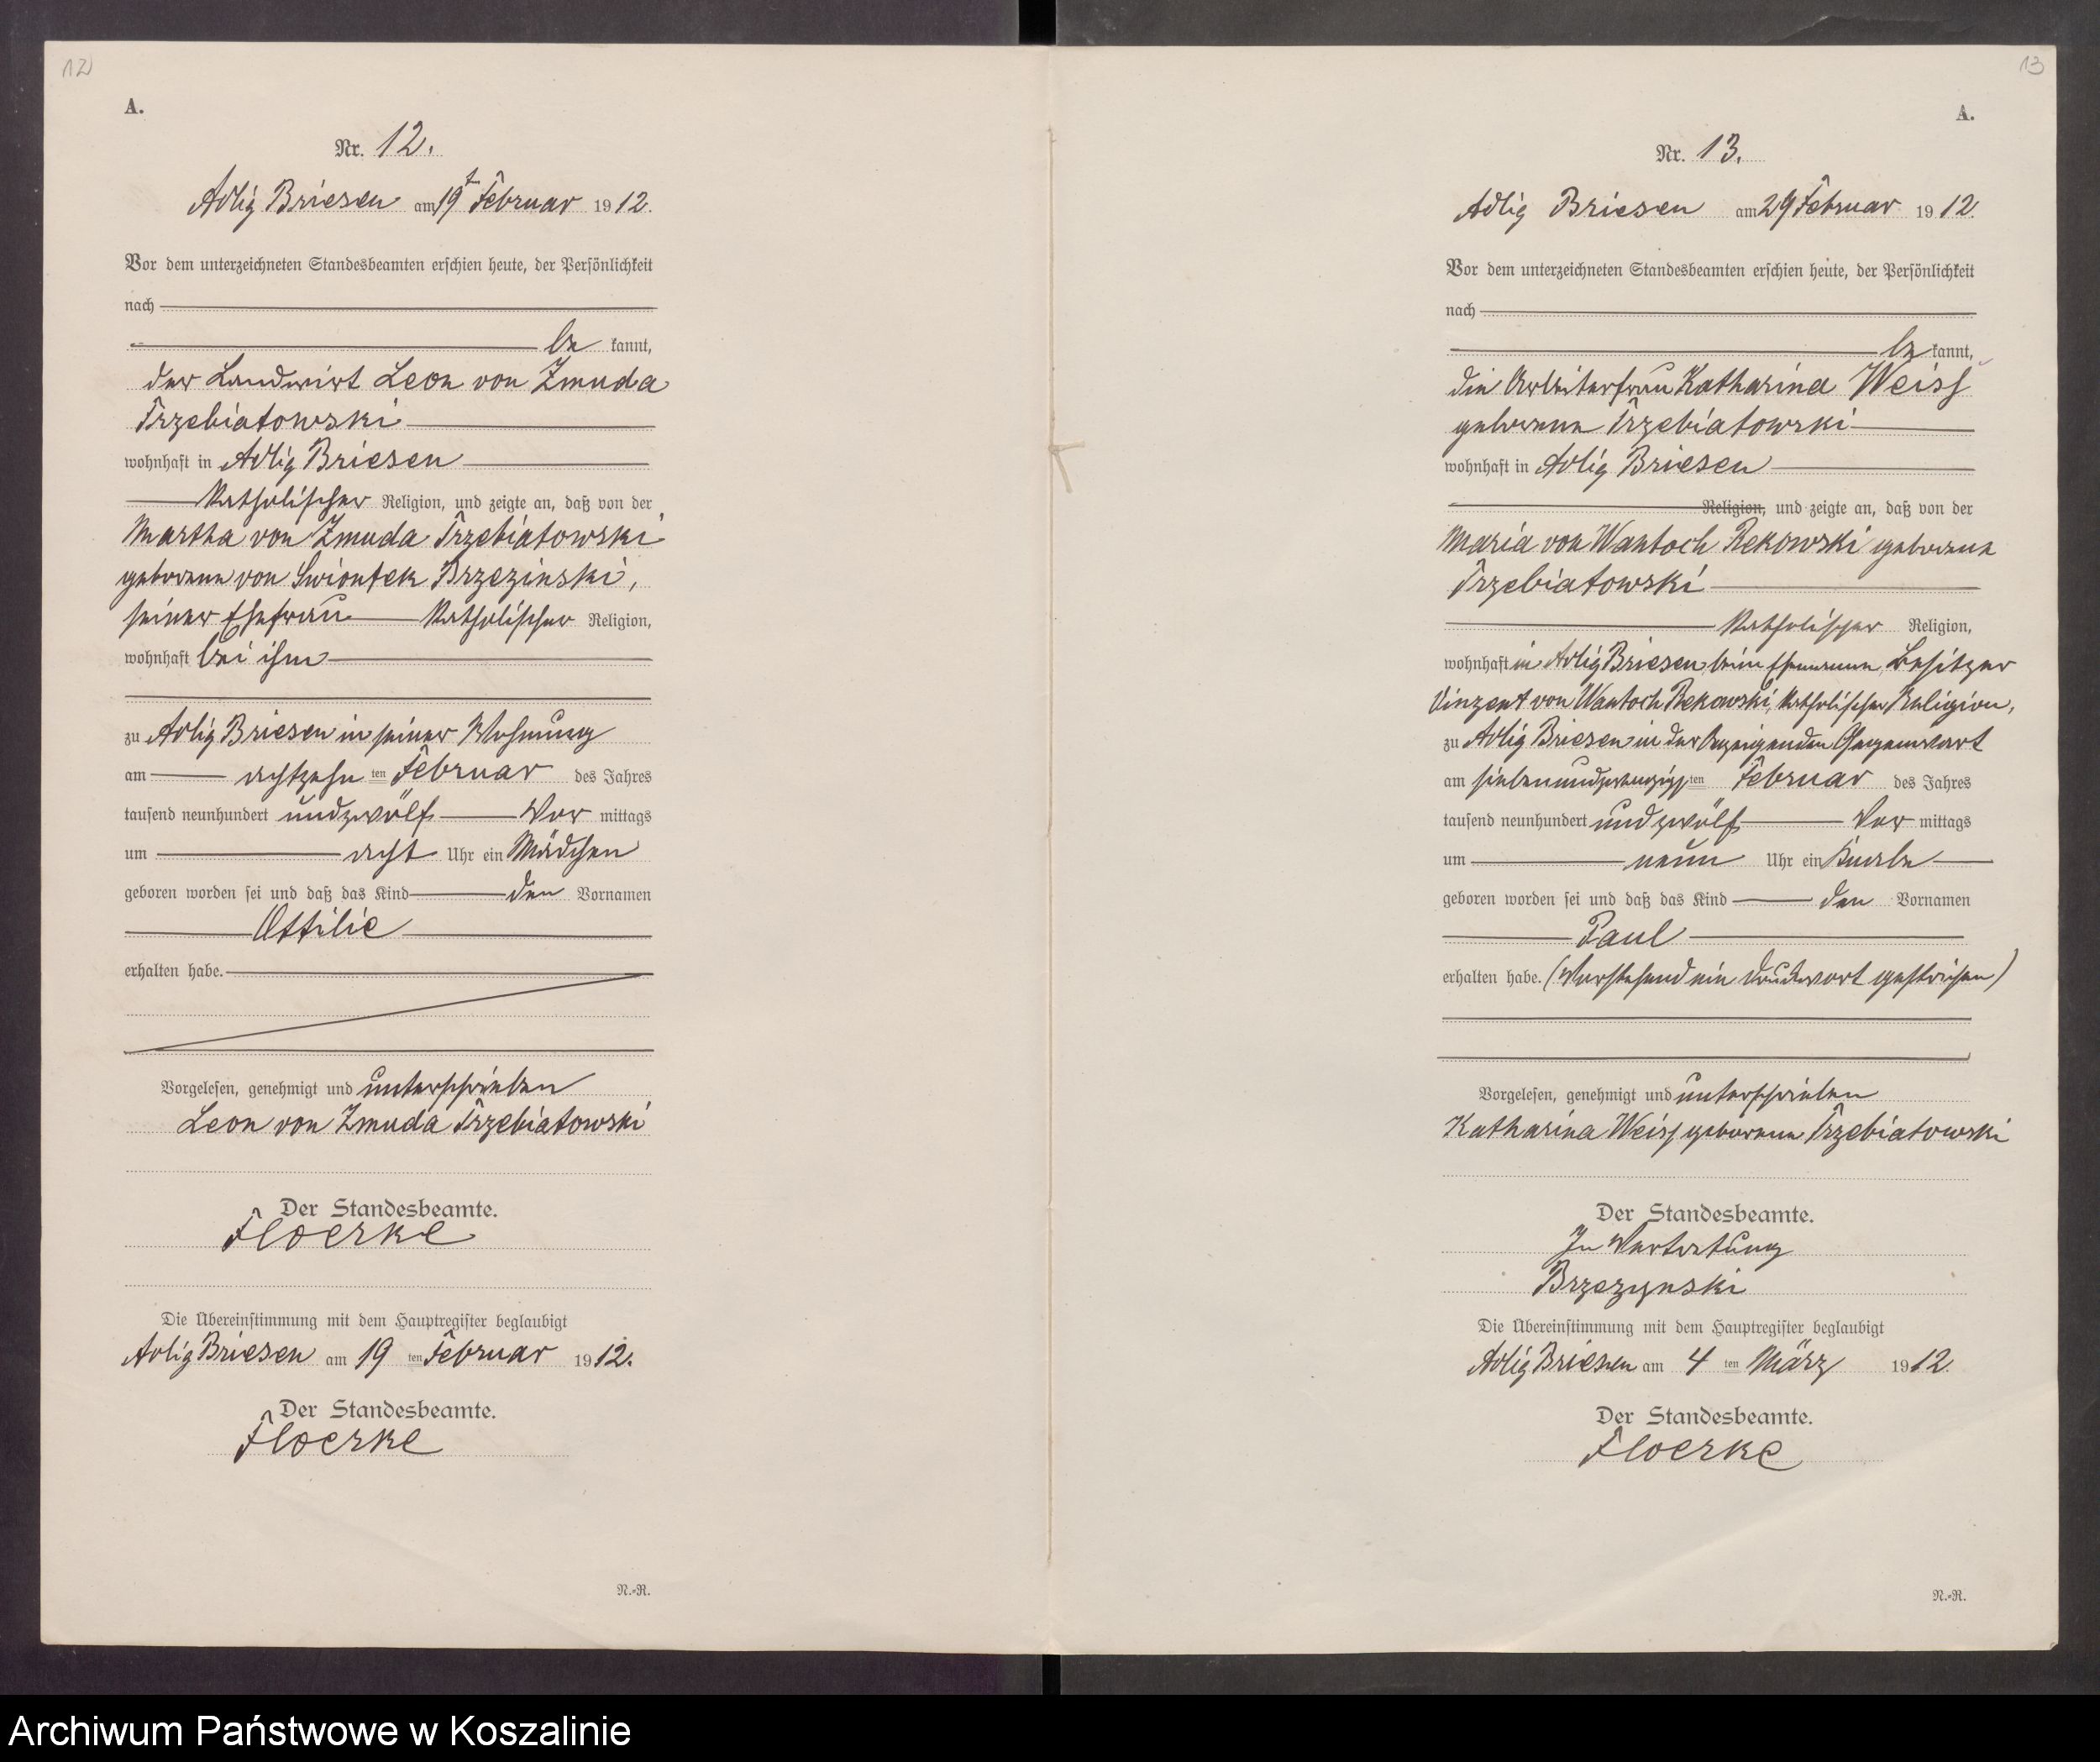 12
A.
Nr. 12.
Adlig Briesen am 19t Februar 1912.
Vor dem unterzeichneten Standesbeamten erschien heute, der Persönlichkeit
nach
be kannt,
der Landwirt Leon von Zmuda
Trzebiatowski
wohnhaft in Adlig Briesen
katholischer Religion, und zeigte an, daß von der
Martha von Zmuda Trzebiatowski
geborene von Swiontek Brzezinski,
seiner Ehefrau katholischer Religion,
wohnhaft bei ihm
zu Adlig Briesen in seiner Wohnung
am achtzehn ten Februar des Jahres
tausend neunhundert undzwölf Vor mittags
um acht Uhr ein Mädchen
geboren worden sei und daß das Kind den Vornamen
Ottilie
erhalten habe.
Vorgelesen, genehmigt und unterschrieben
Leon von Zmuda Trzebiatowski
Der Standesbeamte.
Floerke
Die Übereinstimmung mit dem Hauptregister beglaubigt
Adlig Briesen am 19 ten Februar 1912.
Der Standesbeamte.
Floerke
N.-R.
13
A.
Nr. 13.
Adlig Briesen am 29 Februar 1912.
Vor dem unterzeichneten Standesbeamten erschien heute, der Persönlichkeit
nach
be kannt,
die Arbeiterfrau Katharina Weiss
geborene Trzebiatowski
wohnhaft in Adlig Briesen
Religion, und zeigte an, daß von der
Maria von Wantoch Rekowski geborene
Trzebiatowski
katholischer Religion,
wohnhaft in Adlig Briesen beim Ehemanne, Besitzer
Vinzent von Wantoch Rekowski, katholischer Religion,
zu Adlig Briesen in der Anzeigenden Gegenwart
am siebenundzwanzig ten Februar des Jahres
tausend neunhundert und zwölf Vor mittags
um neun Uhr ein Knabe
geboren worden sei und daß das Kind den Vornamen
Paul
erhalten habe. (Vorstehend ein Druckwort gestrichen)
Vorgelesen, genehmigt und unterschrieben
Katharina Weiss geborene Trzebiatowski
Der Standesbeamte.
In Vertretung
Brzezynski
Die Übereinstimmung mit dem Hauptregister beglaubigt
Adlig Briesen am 4 ten März 1912.
Der Standesbeamte.
Floerke
N.-R.
Archiwum Państwowe w Koszalinie